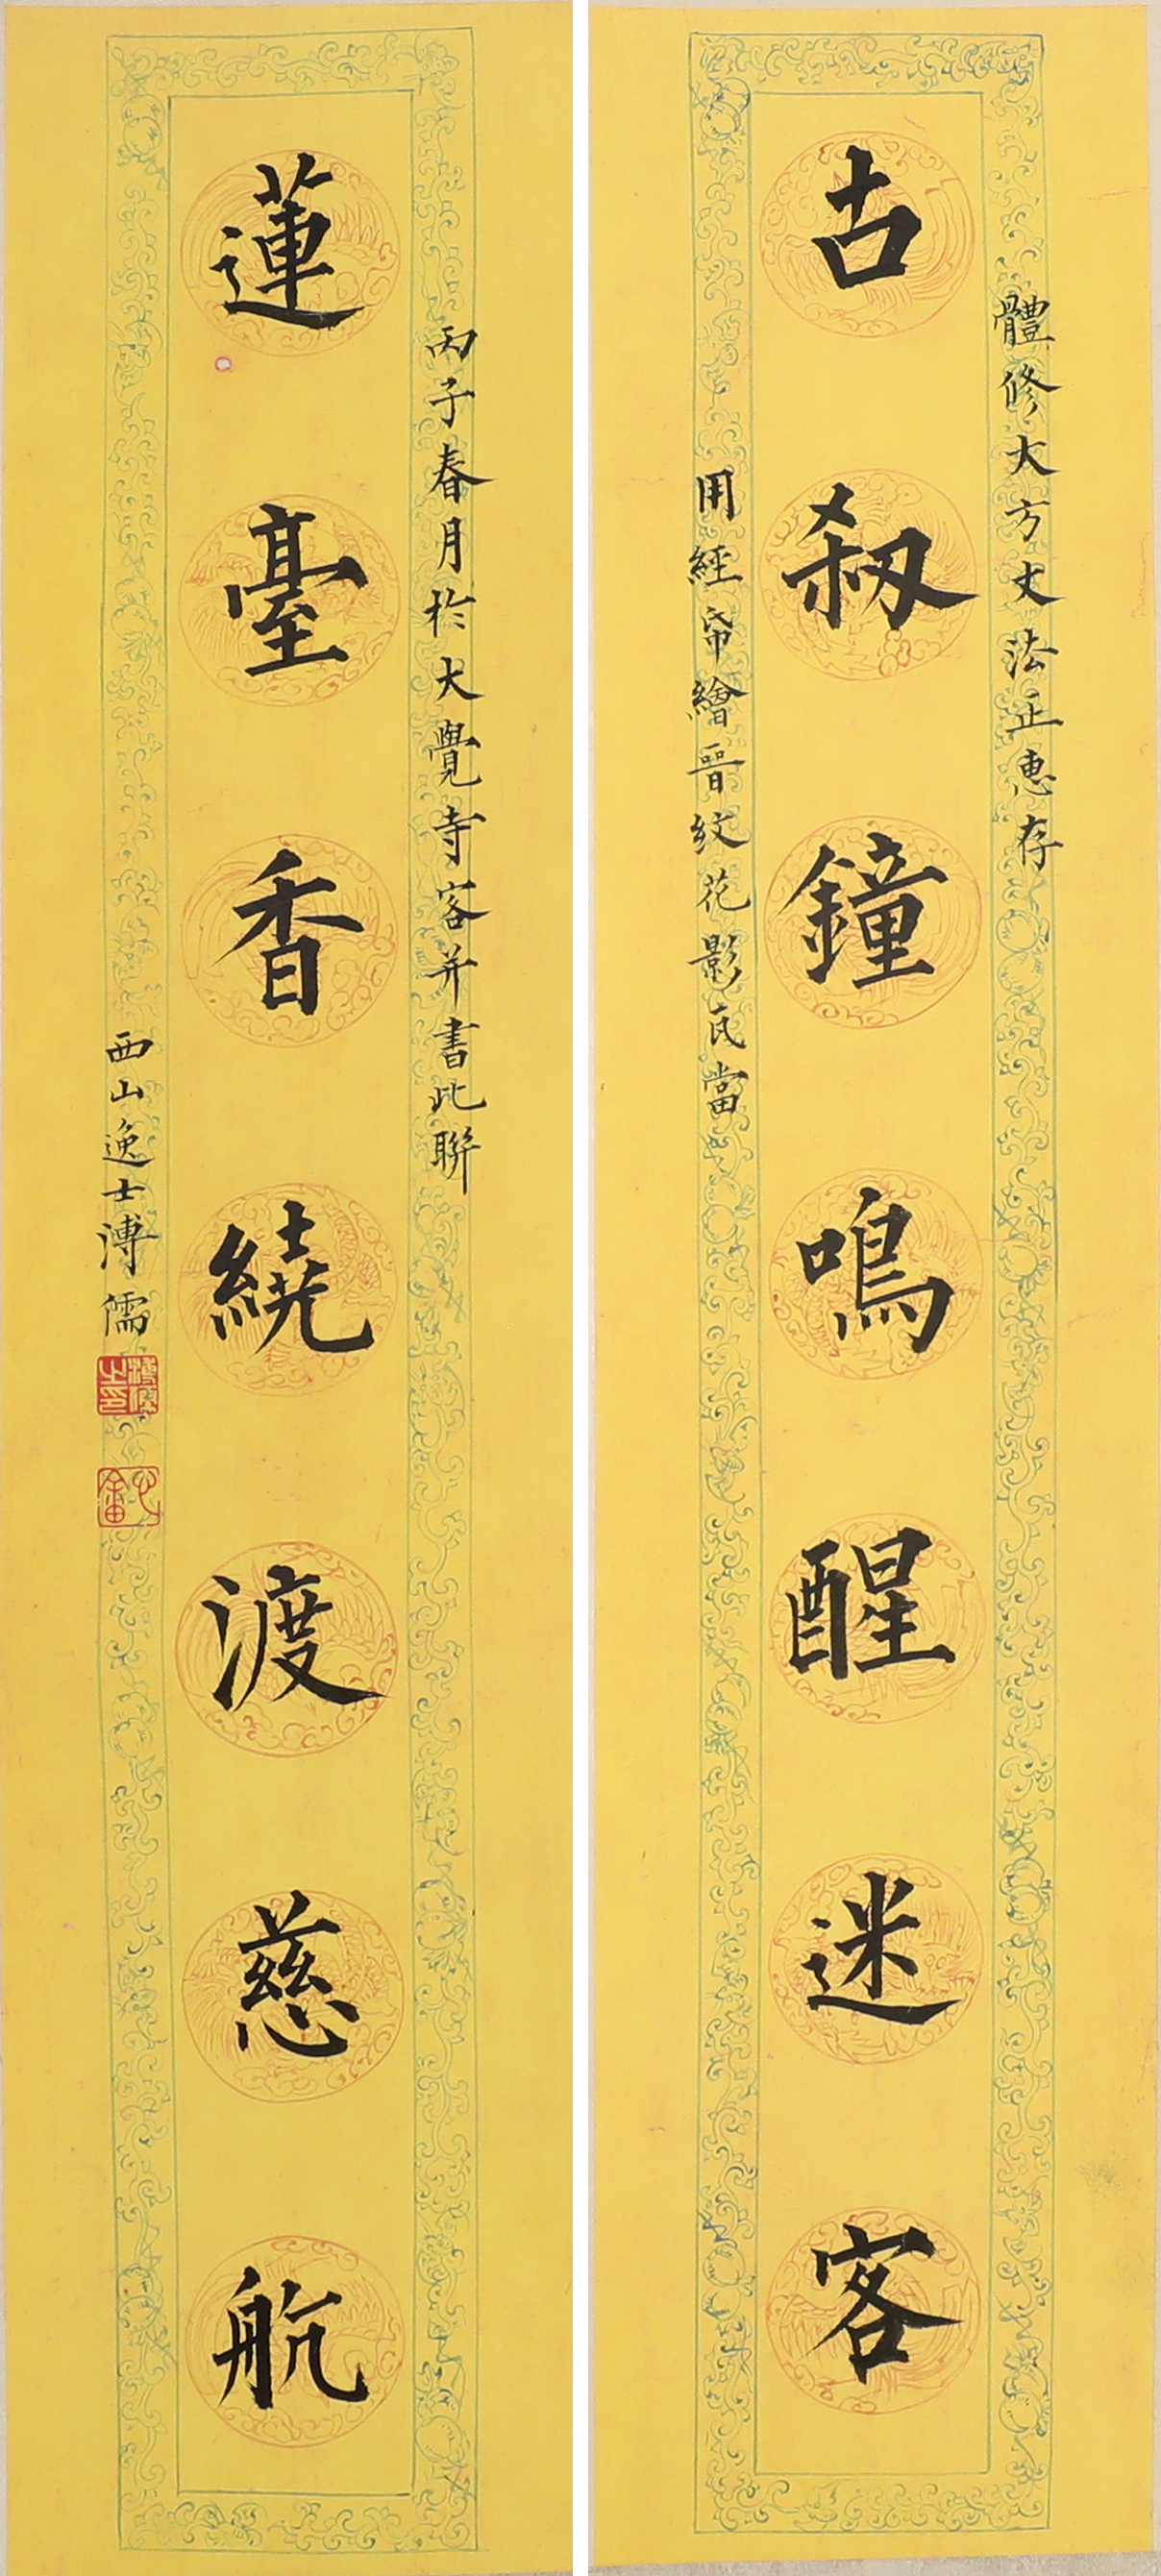 體修大方丈法正惠存
古刹鐘鳴醒迷客
用經帋繪晉紋花影瓦當
丙子春月於大覺寺客并書此聯
蓮臺香繞渡慈航
西山逸士溥儒
溥儒之印
心畬